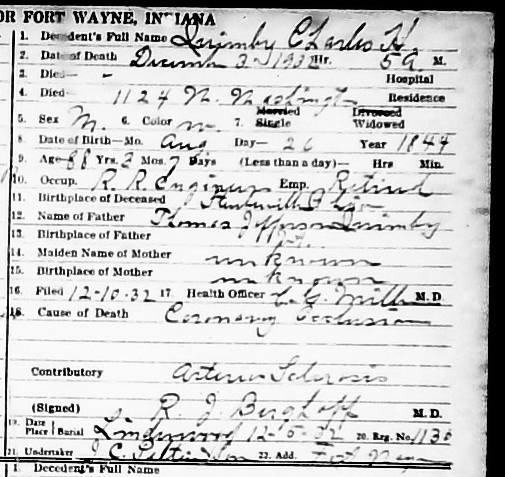 OR FORT WAYNE, INDIANA
1. Decedent's Full Name Quimby Charles H
2. Date of Death December 3 1932 Hr. 5 a. M.
3. Died— - Hospital
4. Died 1124 N. Washington Residence
5. Sex M. 6. Color w. 7. Married Single Divorced Widowed
8. Date of Birth—Mo. Aug Day— 26 Year 1844
9. Age 88 Yrs. 3 Mos. 7 Days (Less than a day)— Hrs Min.
10. Occup. R. R. Engineer Emp. Retired
11. Birthplace of Deceased Ohio
12. Name of Father Thomas Jefferson Quimby
13. Birthplace of Father
14. Maiden Name of Mother unknown
15. Birthplace of Mother unknown
16. Filed 12-10-32 17. Health Officer M.D.
18. Cause of Death Coronary Occlusion
Contributory Arterio Sclerosis
(Signed) R. J. Berghoff M. D.
19. Date Place Burial Lindenwood 12-5-32 20. Reg. No. 1130
21. Undertaker J. C. Peltier & Son 22. Add. Fort Wayne
1. Decedent's Full Name